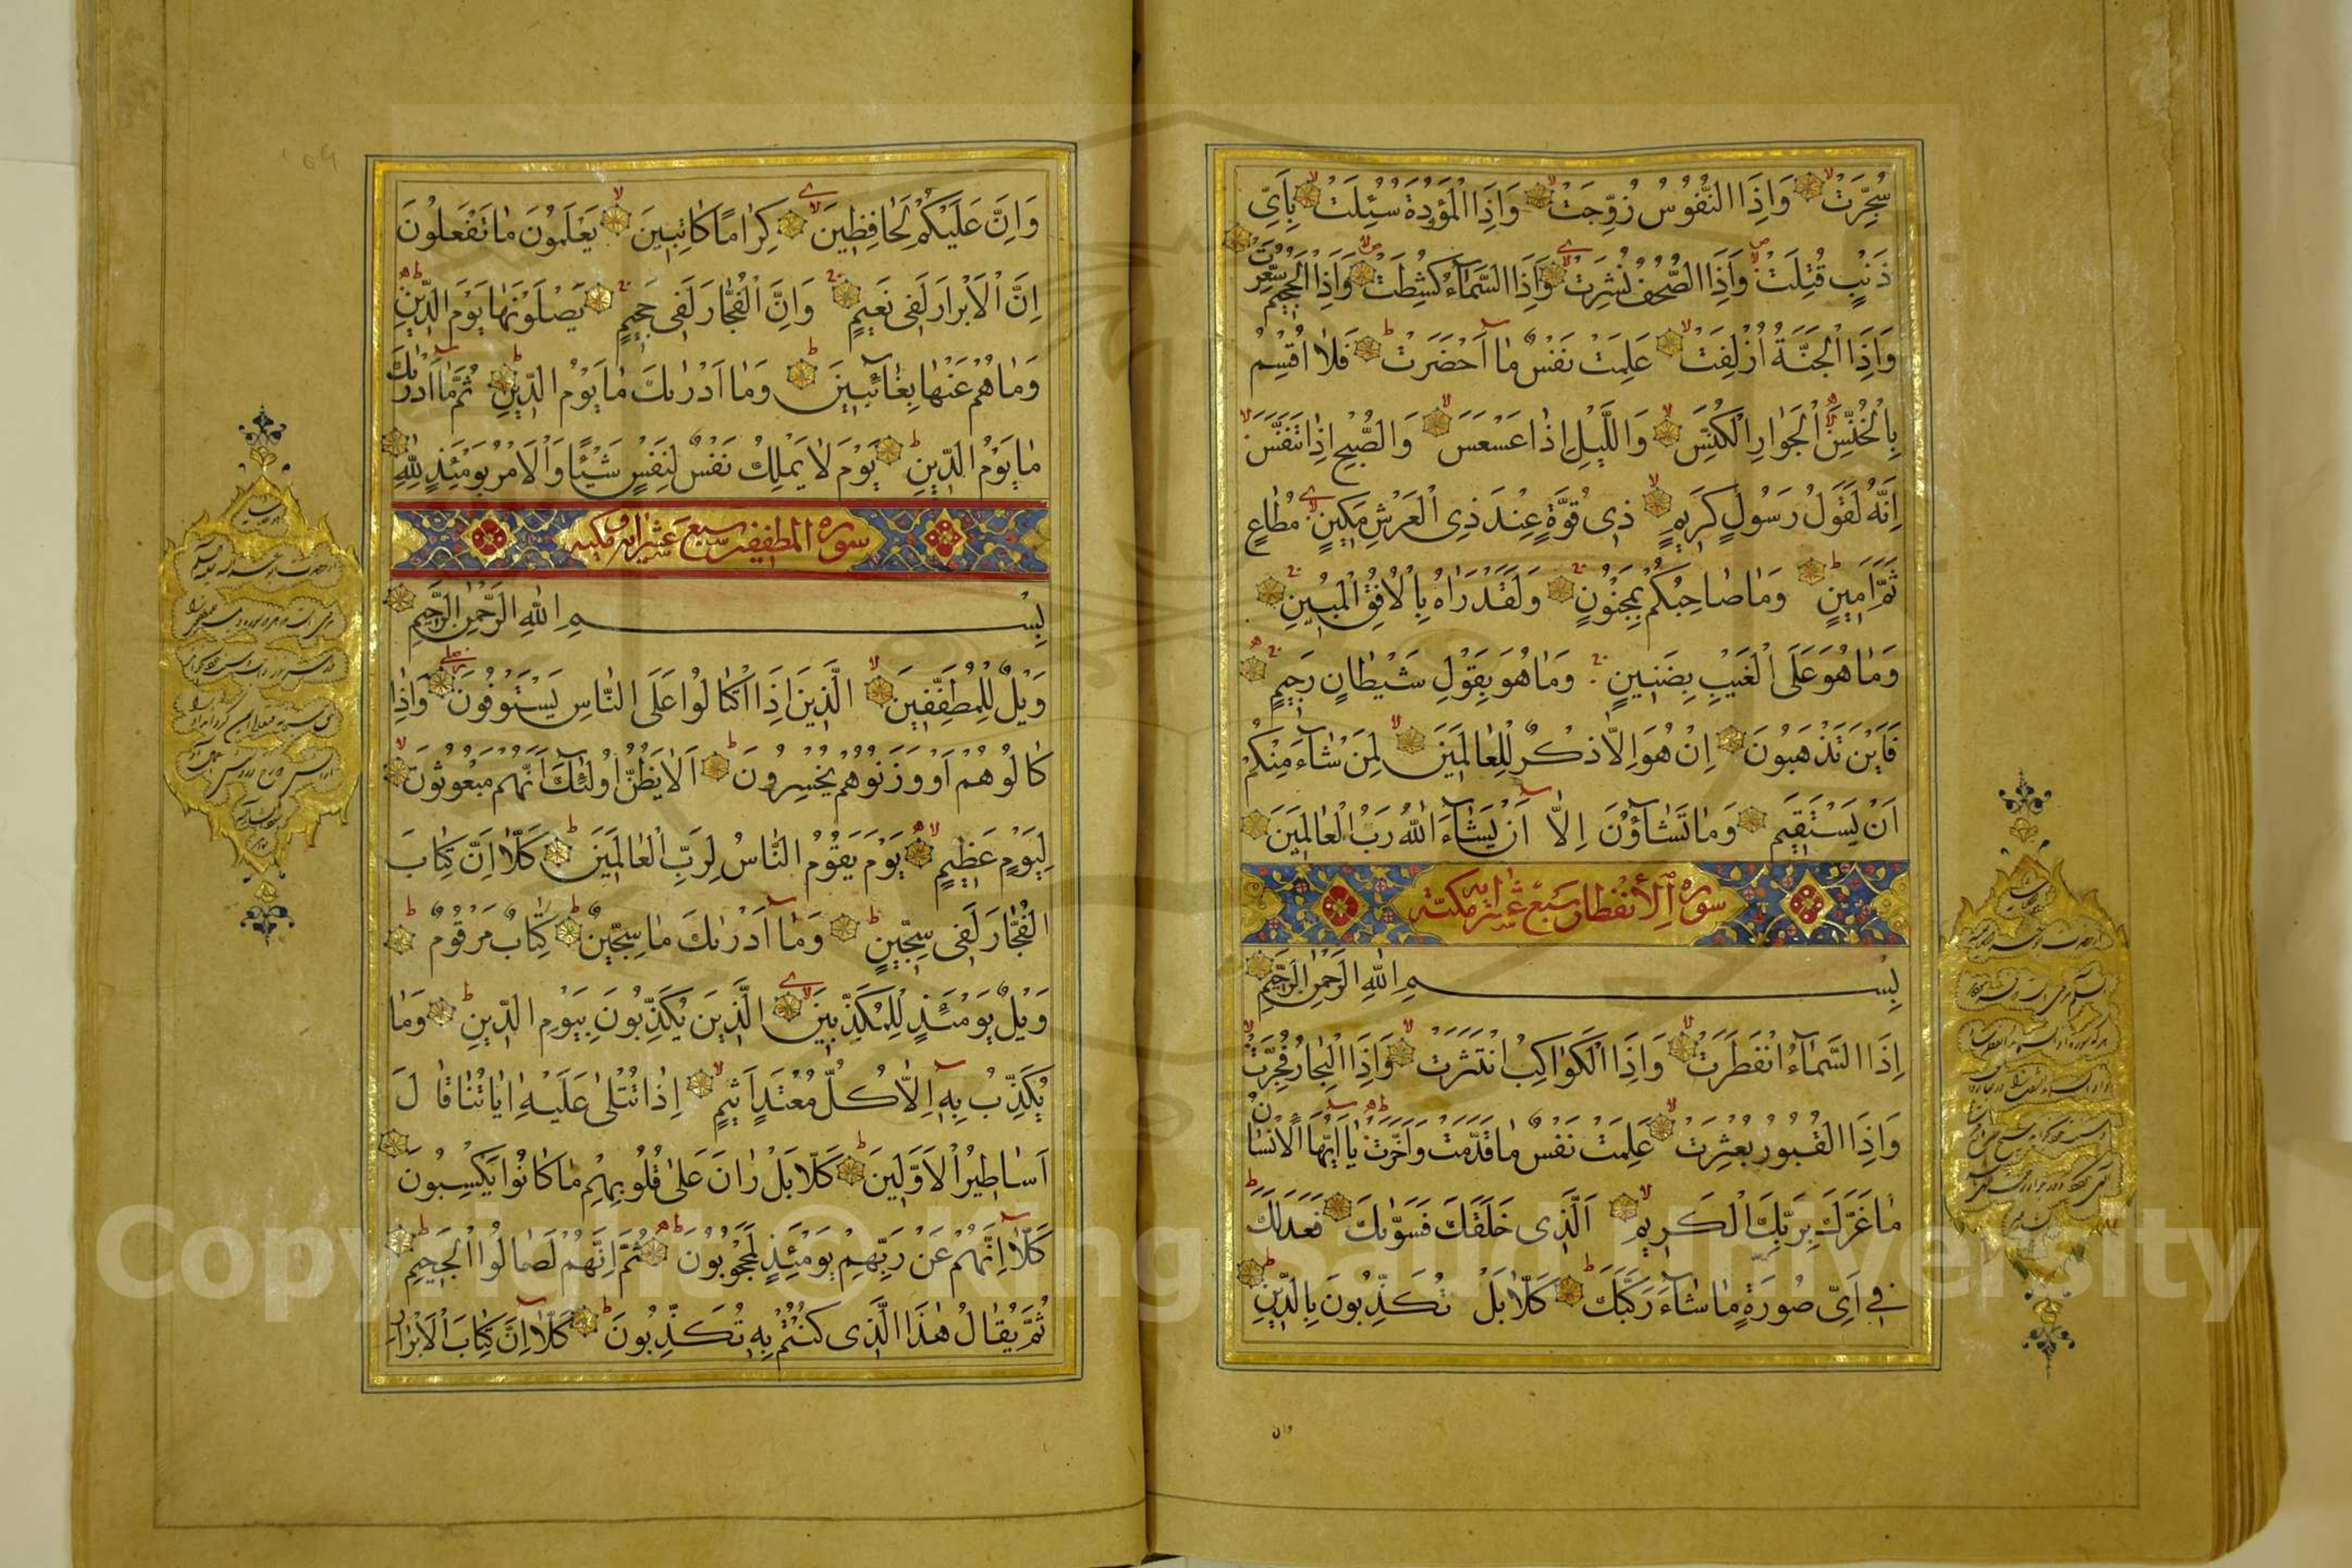 سُجِّرَتْ وَاِذَا النُّفُوسُ زُوِّجَتْ وَاِذَا الْمَوْدَةُ سُئِلَتْ بِاَيِّ
ذَنْبٍ قُتِلَتْ وَاِذَا الصُّحُفُ نُشِرَتْ وَاِذَا السَّمَآءُ كُشِطَتْ وَاِذَا الْجَحِيمُ سُعِّرَتْ
وَاِذَا الْجَنَّةُ اُزْلِفَتْ عَلِمَتْ نَفْسٌ مٰا اَحْضَرَتْ فَلٰا اُقْسِمُ
بِالْخُنَّسِ الْجَوٰارِ الْكُنَّسِ وَاللَّيْلِ اِذٰا عَسْعَسَ وَالصُّبْحِ اِذٰا تَنَفَّسَ
اِنَّهُ لَقَوْلُ رَسُولٍ كَرِيمٍ ذِى قُوَّةٍ عِنْدَ ذِى الْعَرْشِ مَكِينٍ مُطٰاعٍ
ثَمَّ اَمِينٍ وَمٰا صٰاحِبُكُمْ بِمَجْنُونٍ وَلَقَدْ رَاٰهُ بِالْاُفُقِ الْمُبِينِ
وَمٰا هُوَ عَلَى الْغَيْبِ بِضَنِينٍ وَمٰا هُوَ بِقَوْلِ شَيْطٰانٍ رَجِيمٍ
فَاَيْنَ تَذْهَبُونَ اِنْ هُوَ اِلّٰا ذِكْرٌ لِلْعٰالَمِينَ لِمَنْ شٰآءَ مِنْكُمْ
اَنْ يَسْتَقِيمَ وَمٰا تَشٰآؤُنَ اِلّٰا اَنْ يَشٰآءَ اللّٰهُ رَبُّ الْعٰالَمِينَ
سورة الأنفطار سبع عشر اية مكية
بِسْمِ اللّٰهِ الرَّحْمٰنِ الرَّحِيمِ
اِذَا السَّمَآءُ انْفَطَرَتْ وَاِذَا الْكَوٰاكِبُ انْتَثَرَتْ وَاِذَا الْبِحٰارُ فُجِّرَتْ
وَاِذَا الْقُبُورُ بُعْثِرَتْ عَلِمَتْ نَفْسٌ مٰا قَدَّمَتْ وَاَخَّرَتْ يٰا اَيُّهَا الْاِنْسٰانُ
مٰا غَرَّكَ بِرَبِّكَ الْكَرِيمِ اَلَّذِى خَلَقَكَ فَسَوّٰيكَ فَعَدَلَكَ
فِى اَىِّ صُورَةٍ مٰا شٰآءَ رَكَّبَكَ كَلّٰا بَلْ تُكَذِّبُونَ بِالدِّينِ
وان
وَاِنَّ عَلَيْكُمْ لَحٰافِظِينَ كِرٰامًا كٰاتِبِينَ يَعْلَمُونَ مٰا تَفْعَلُونَ
اِنَّ الْاَبْرٰارَ لَفِى نَعِيمٍ وَاِنَّ الْفُجّٰارَ لَفِى جَحِيمٍ يَصْلَوْنَهٰا يَوْمَ الدِّينِ
وَمٰا هُمْ عَنْهٰا بِغٰآئِبِينَ وَمٰا اَدْرٰيكَ مٰا يَوْمُ الدِّينِ ثُمَّ مٰا اَدْرٰيكَ
مٰا يَوْمُ الدِّينِ يَوْمَ لٰا يَمْلِكُ نَفْسٌ لِنَفْسٍ شَيْئًا وَالْاَمْرُ يَوْمَئِذٍ لِلّٰهِ
سورة المطففين عشر مكية
بِسْمِ اللّٰهِ الرَّحْمٰنِ الرَّحِيمِ
وَيْلٌ لِلْمُطَفِّفِينَ الَّذِينَ اِذَا اكْتٰالُوا عَلَى النّٰاسِ يَسْتَوْفُونَ وَاِذٰا
كٰالُوهُمْ اَوْ وَزَنُوهُمْ يُخْسِرُونَ اَلٰا يَظُنُّ اُولٰئِكَ اَنَّهُمْ مَبْعُوثُونَ
لِيَوْمٍ عَظِيمٍ يَوْمَ يَقُومُ النّٰاسُ لِرَبِّ الْعٰالَمِينَ كَلّٰا اِنَّ كِتٰابَ
الْفُجّٰارِ لَفِى سِجِّينٍ وَمٰا اَدْرٰيكَ مٰا سِجِّينٌ كِتٰابٌ مَرْقُومٌ
وَيْلٌ يَوْمَئِذٍ لِلْمُكَذِّبِينَ الَّذِينَ يُكَذِّبُونَ بِيَوْمِ الدِّينِ وَمٰا
يُكَذِّبُ بِهِ اِلّٰا كُلُّ مُعْتَدٍ اَثِيمٍ اِذٰا تُتْلٰى عَلَيْهِ اٰيٰاتُنٰا قٰالَ
اَسٰاطِيرُ الْاَوَّلِينَ كَلّٰا بَلْ رٰانَ عَلٰى قُلُوبِهِمْ مٰا كٰانُوا يَكْسِبُونَ
كَلّٰا اِنَّهُمْ عَنْ رَبِّهِمْ يَوْمَئِذٍ لَمَحْجُوبُونَ ثُمَّ اِنَّهُمْ لَصٰالُوا الْجَحِيمِ
ثُمَّ يُقٰالُ هٰذَا الَّذِى كُنْتُمْ بِهِ تُكَذِّبُونَ كَلّٰا اِنَّ كِتٰابَ الْاَبْرٰارِ
Copyright © King Saud University